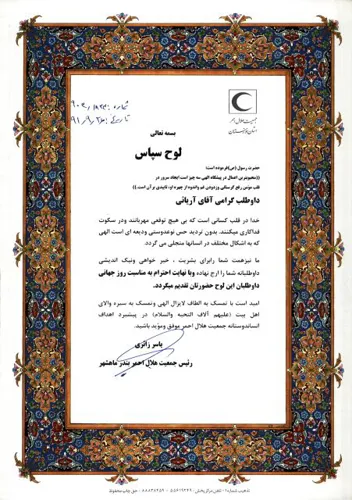 جمعیت هلال احمر
استان خوزستان
شماره: ۹۰۲/۱۸۲۳
تاریخ: ۹۱/۹/۲۵
بسمه تعالی
لوح سپاس
حضرت رسول (ص)فرموده است:
((محبوبترین اعمال در پیشگاه الهی سه چیز است ایجاد سرور در
قلب مومن رفع گرسنگی وزدودن غم واندوه از چهره او، تایدی بر آن است.))
داوطلب گرامی آقای آریائی
خدا در قلب کسانی است که بی هیچ توقعی مهربانند ودر سکوت
فداکاری میکنند. بدون تردید حس نوعدوستی ودیعه ای است الهی
که به اشکال مختلف در انسانها متجلی می گردد.
ما نیزهمت شما رابرای بشریت ، خیر خواهی ونیک اندیشی
داوطلبانه شما را ارج نهاده وبا نهایت احترام به مناسبت روز جهانی
داوطلبان این لوح حضورتان تقدیم میگردد.
امید است با تمسک به الطاف لایزال الهی وتمسک به سیره والای
اهل بیت (علیهم آلاف التحیه والسلام) در پیشبرد اهداف
انساندوستانه جمعیت هلال احمر موفق ومؤید باشید.
یاسر زائری
رئیس جمعیت هلال احمر بندر ماهشهر